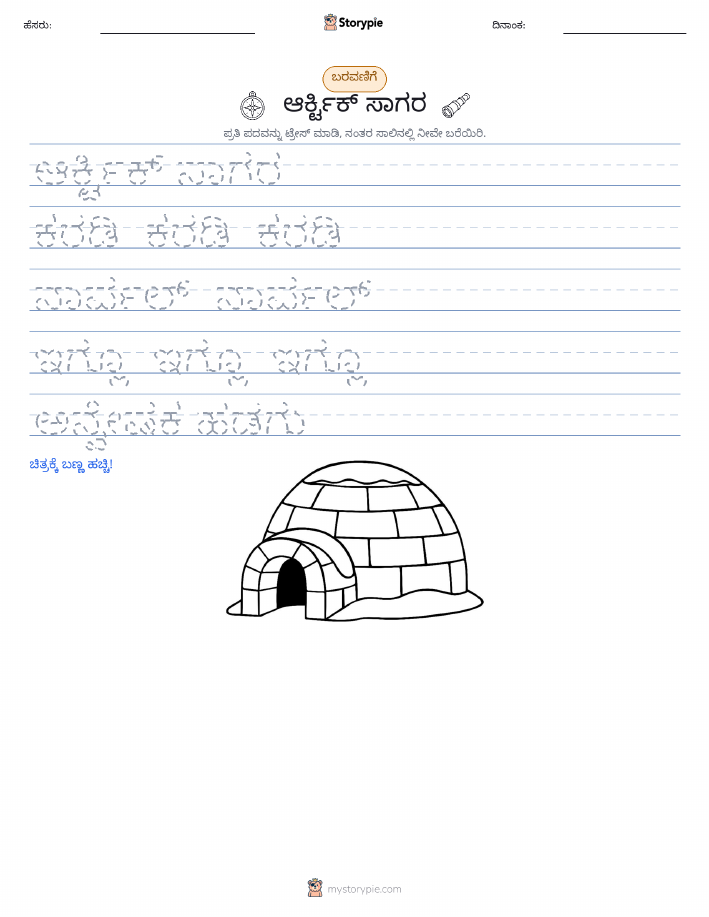 ಹೆಸರು:
Storypie
ದಿನಾಂಕ:
ಬರವಣಿಗೆ
ಆರ್ಕ್ಟಿಕ್ ಸಾಗರ
ಪ್ರತಿ ಪದವನ್ನು ಟ್ರೇಸ್ ಮಾಡಿ, ನಂತರ ಸಾಲಿನಲ್ಲಿ ನೀವೇ ಬರೆಯಿರಿ.
ಆರ್ಕ್ಟಿಕ್ ಸಾಗರ
ಕರಡಿ ಕರಡಿ ಕರಡಿ
ನಾರ್ವೆಲ್ ನಾರ್ವೆಲ್
ಇಗ್ಲೂ ಇಗ್ಲೂ ಇಗ್ಲೂ
ಅನ್ವೇಷಕ ಹಡಗು
ಚಿತ್ರಕ್ಕೆ ಬಣ್ಣ ಹಚ್ಚಿ!
mystorypie.com